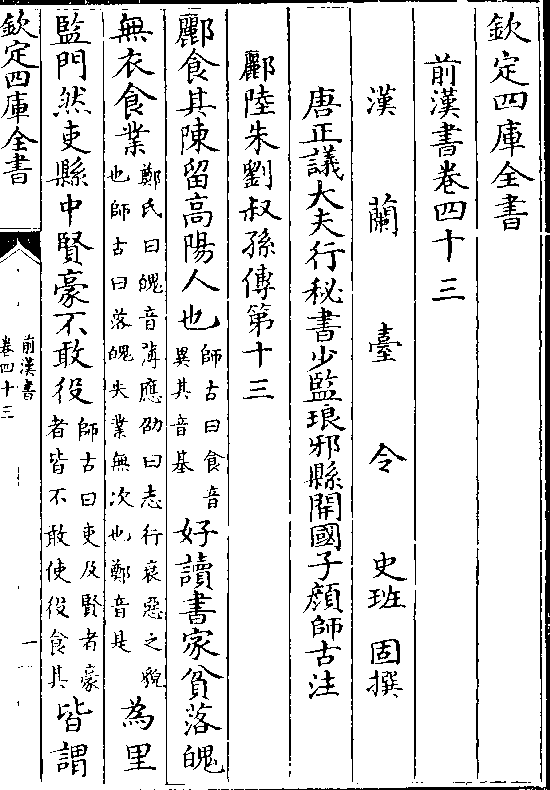 欽定四庫全書
前漢書卷四十三
漢蘭臺令史班固撰
唐正議大夫行秘書少監琅邪縣開國子顔師古注
酈陸朱劉叔孫傳第十三
酈食其陳留高陽人也師古曰食音異其音基好讀書家貧落魄
無衣食業鄭氏曰魄音薄應劭曰志行衰惡之貌也師古曰落魄失業無次也鄭音是為里
監門然吏縣中賢豪不敢役師古曰吏及賢者豪者皆不敢使役食其皆謂
欽定四庫全書
前漢書
卷四十三
一